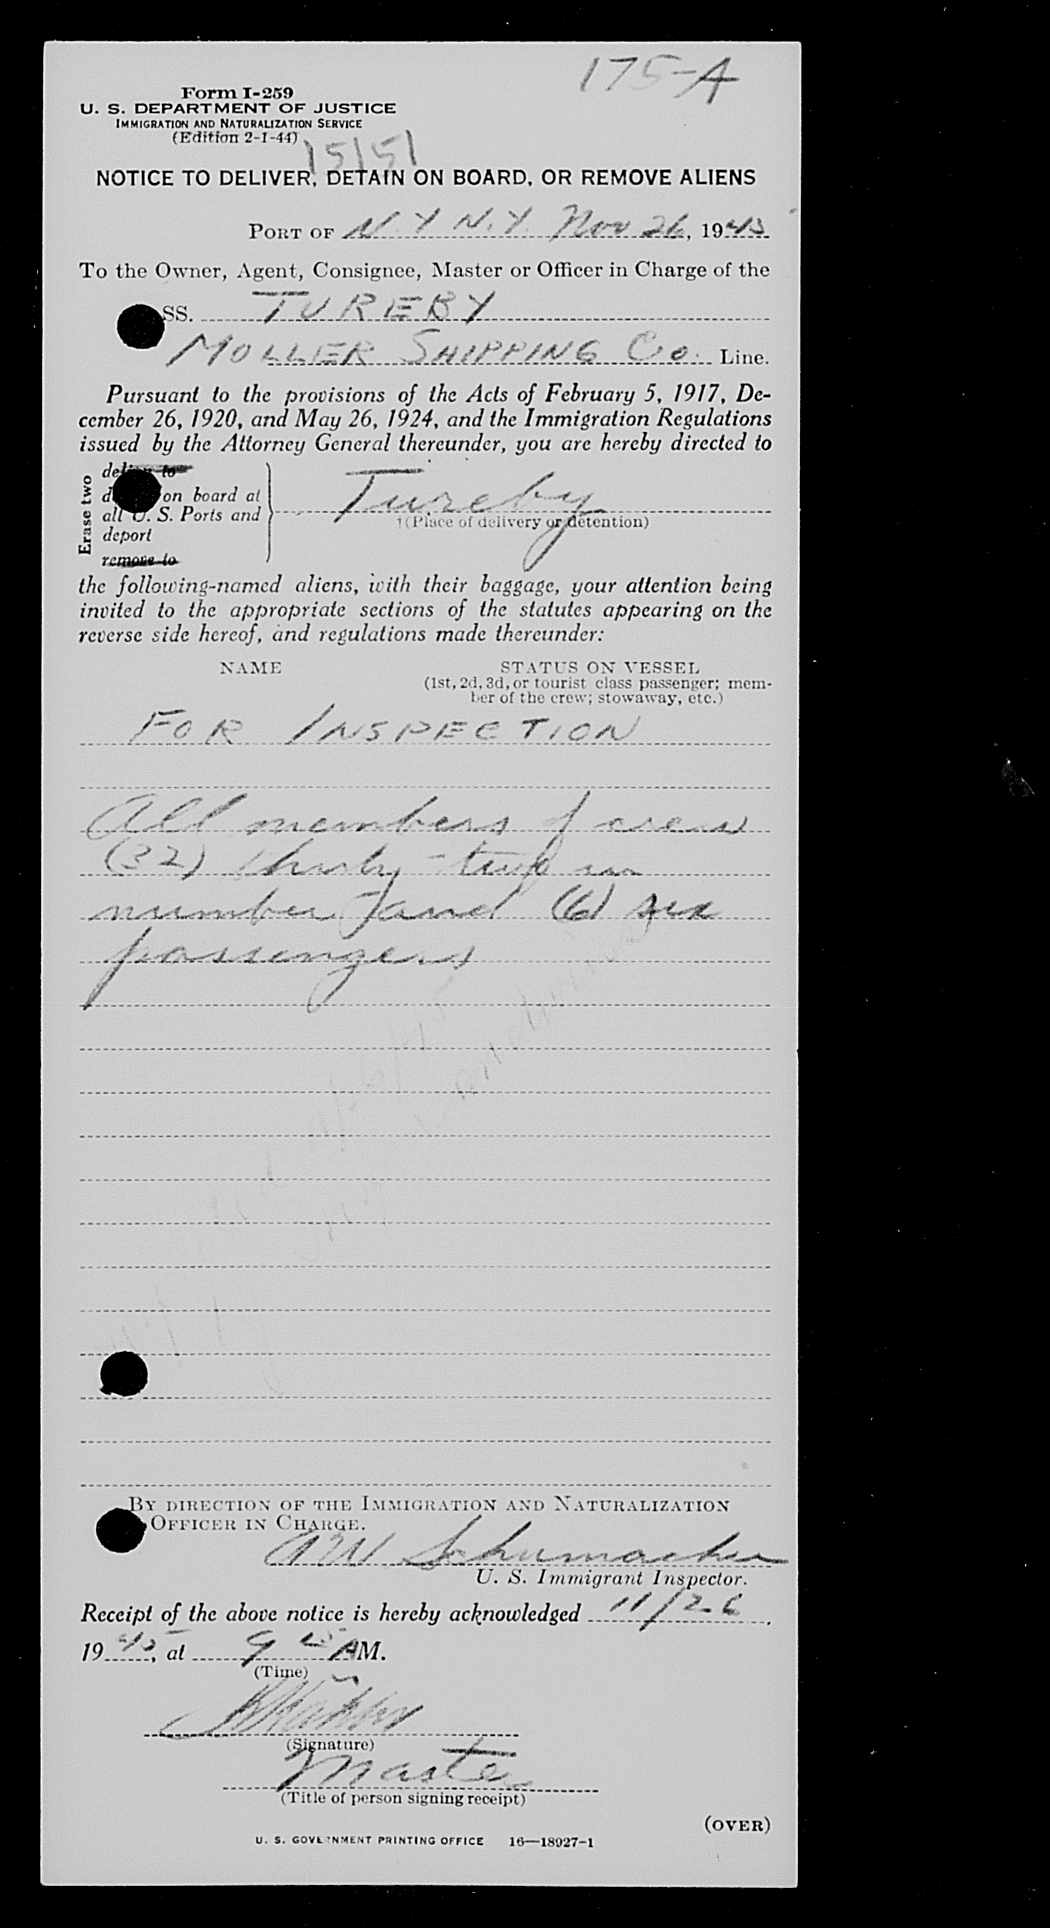 175-A
Form I-259
U. S. DEPARTMENT OF JUSTICE
IMMIGRATION AND NATURALIZATION SERVICE
(Edition 2-1-44)
15151
NOTICE TO DELIVER, DETAIN ON BOARD, OR REMOVE ALIENS
PORT OF N.Y. N.Y. Nov 26, 1945
To the Owner, Agent, Consignee, Master or Officer in Charge of the
SS. TUREBY
MOLLER SHIPPING Co. Line.
Pursuant to the provisions of the Acts of February 5, 1917, De-
cember 26, 1920, and May 26, 1924, and the Immigration Regulations
issued by the Attorney General thereunder, you are hereby directed to
Erase two
to
on board at
all U. S. Ports and
deport
remove to
Tureby
†(Place of delivery or detention)
the following-named aliens, with their baggage, your attention being
invited to the appropriate sections of the statutes appearing on the
reverse side hereof, and regulations made thereunder:
NAME STATUS ON VESSEL
(1st, 2d, 3d, or tourist class passenger; mem-
ber of the crew; stowaway, etc.)
FOR INSPECTION
All members of crew
(32) thirty-two in
number and (6) six
passengers
BY DIRECTION OF THE IMMIGRATION AND NATURALIZATION
OFFICER IN CHARGE.
Schumacher
U. S. Immigrant Inspector.
Receipt of the above notice is hereby acknowledged 11/26,
1945, at 9 15 AM.
(Time)
(Signature)
Master
(Title of person signing receipt)
(OVER)
U. S. GOVERNMENT PRINTING OFFICE 16—18927-1